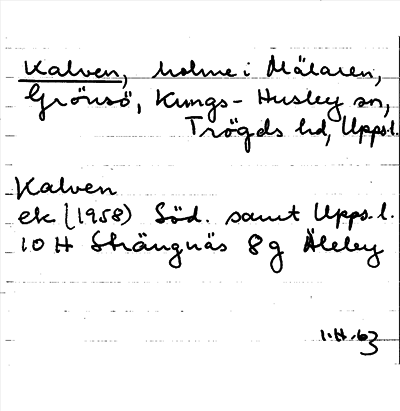 Kalven, holme i Mälaren,
Grönsö, Kungs-Husby sn,
Trögds hd, Uppl.
Kalven
ek (1958) Söd. samt Upps.l.
10 H Strängnäs 8g Äleby
1.11.63